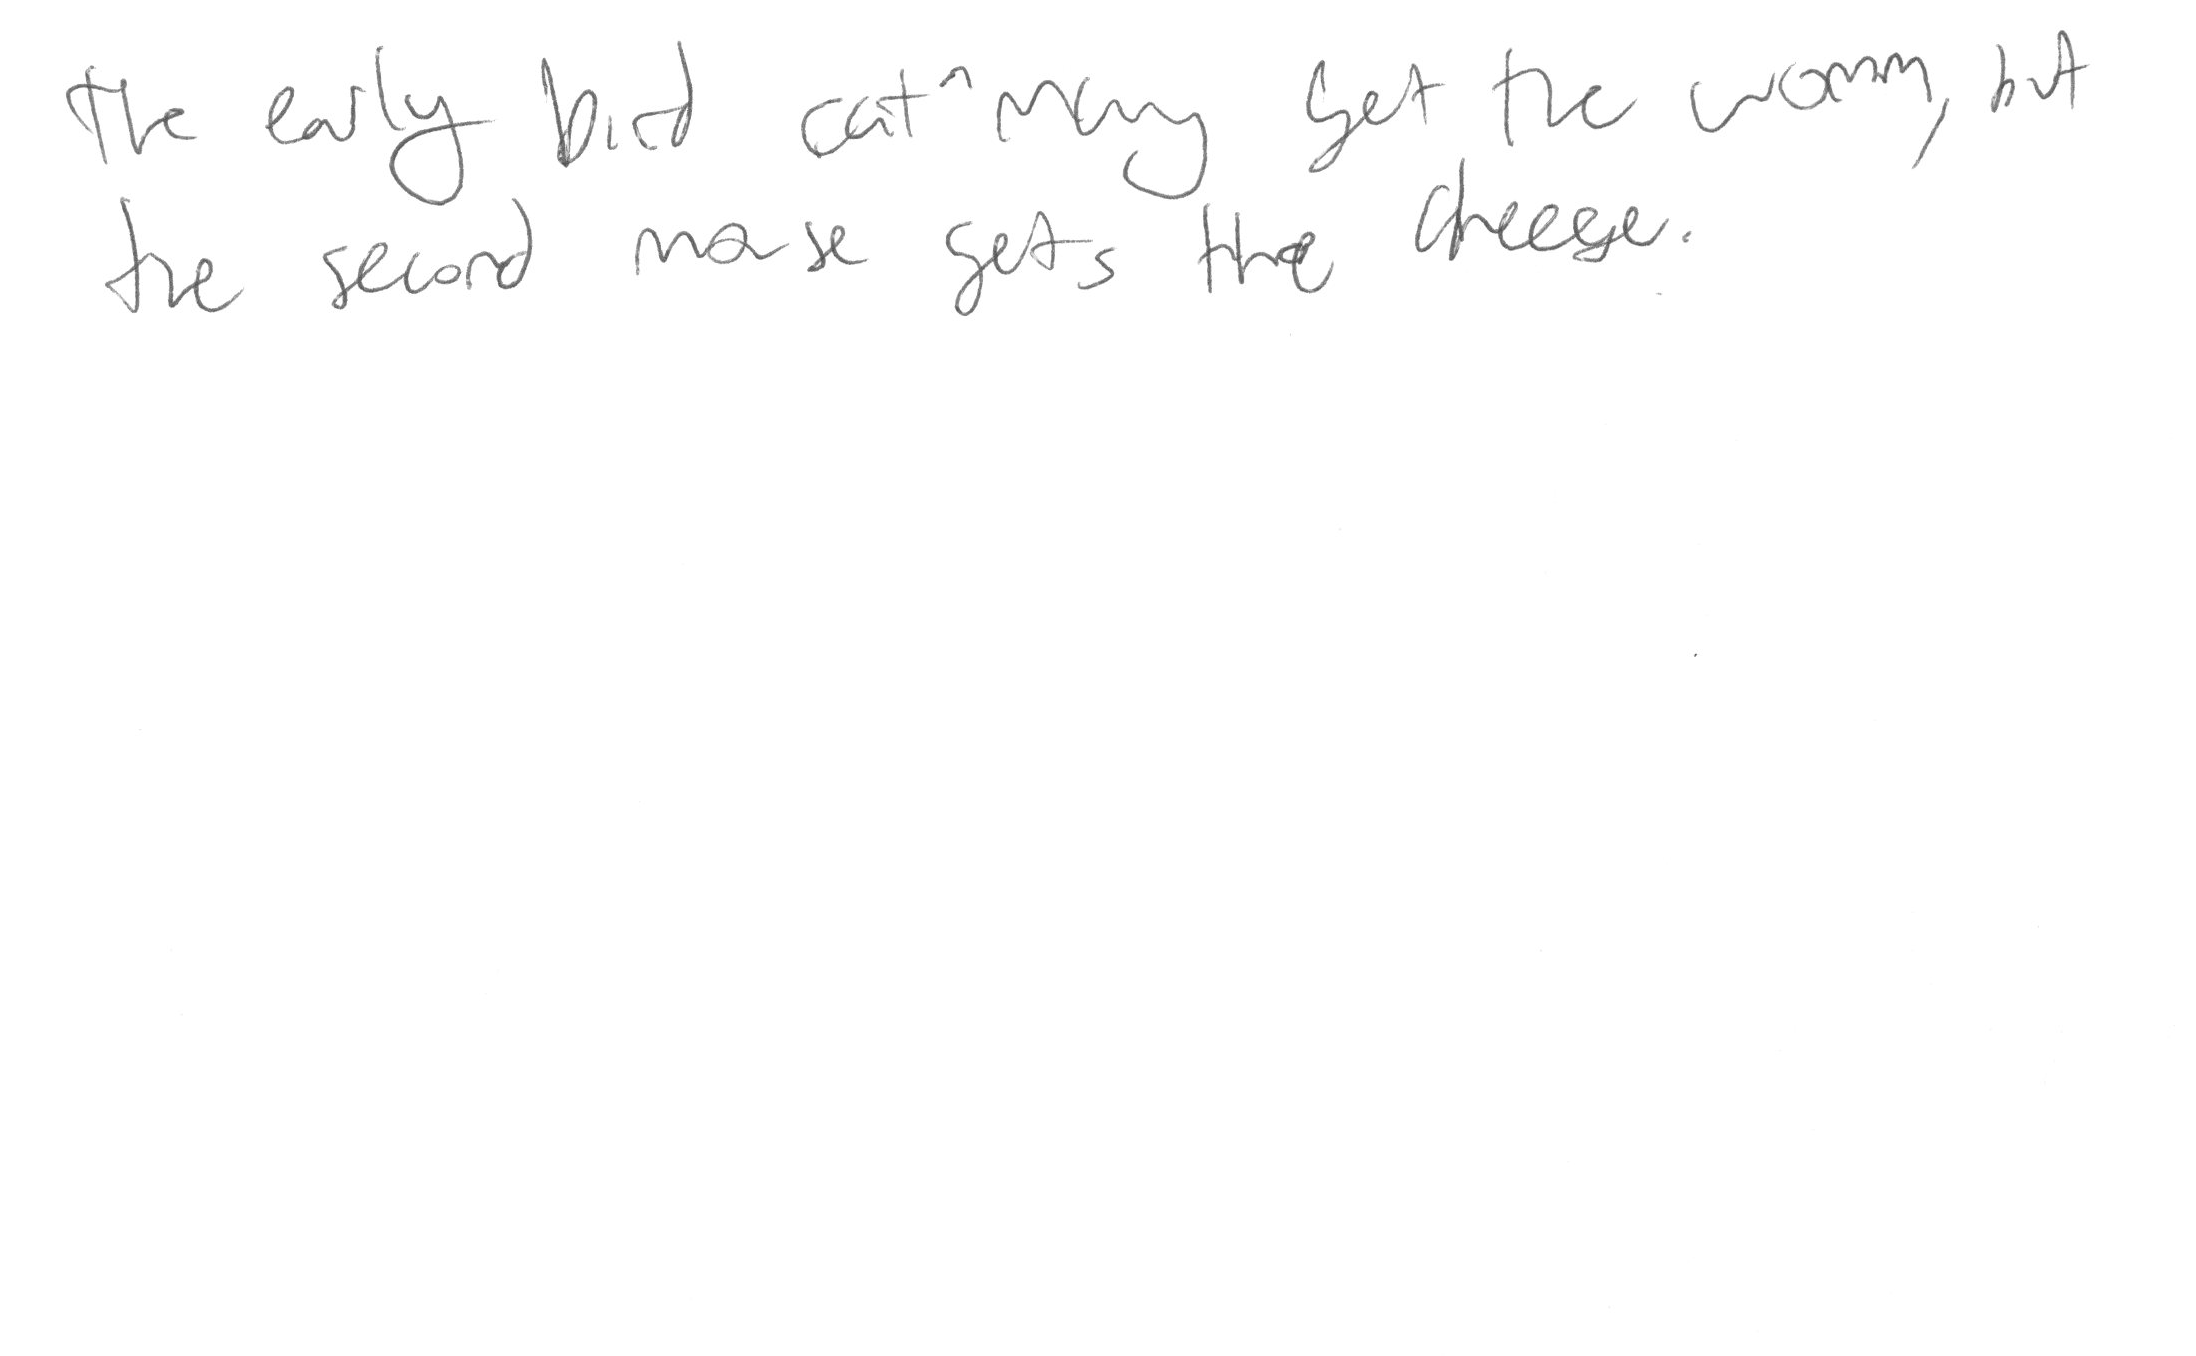 The early bird cat may get the worm, but
the second mouse gets the cheese.